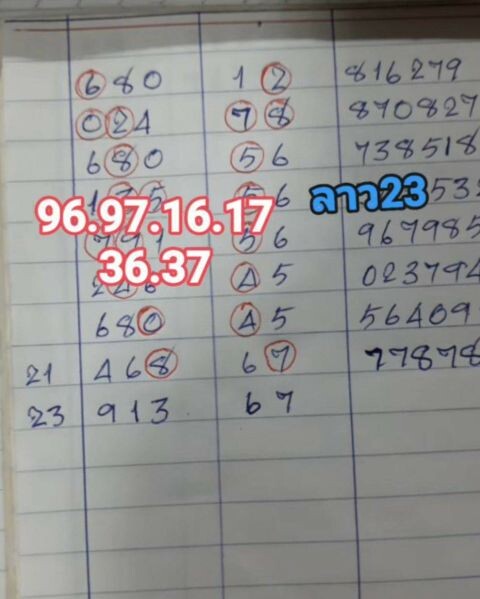 680 12 816279
024 78 870827
680 56 738518
56 ลาว23
96.97.16.17
56 967985
36.37
45 023794
680 45 56409
21 468 67 77878
23 913 67